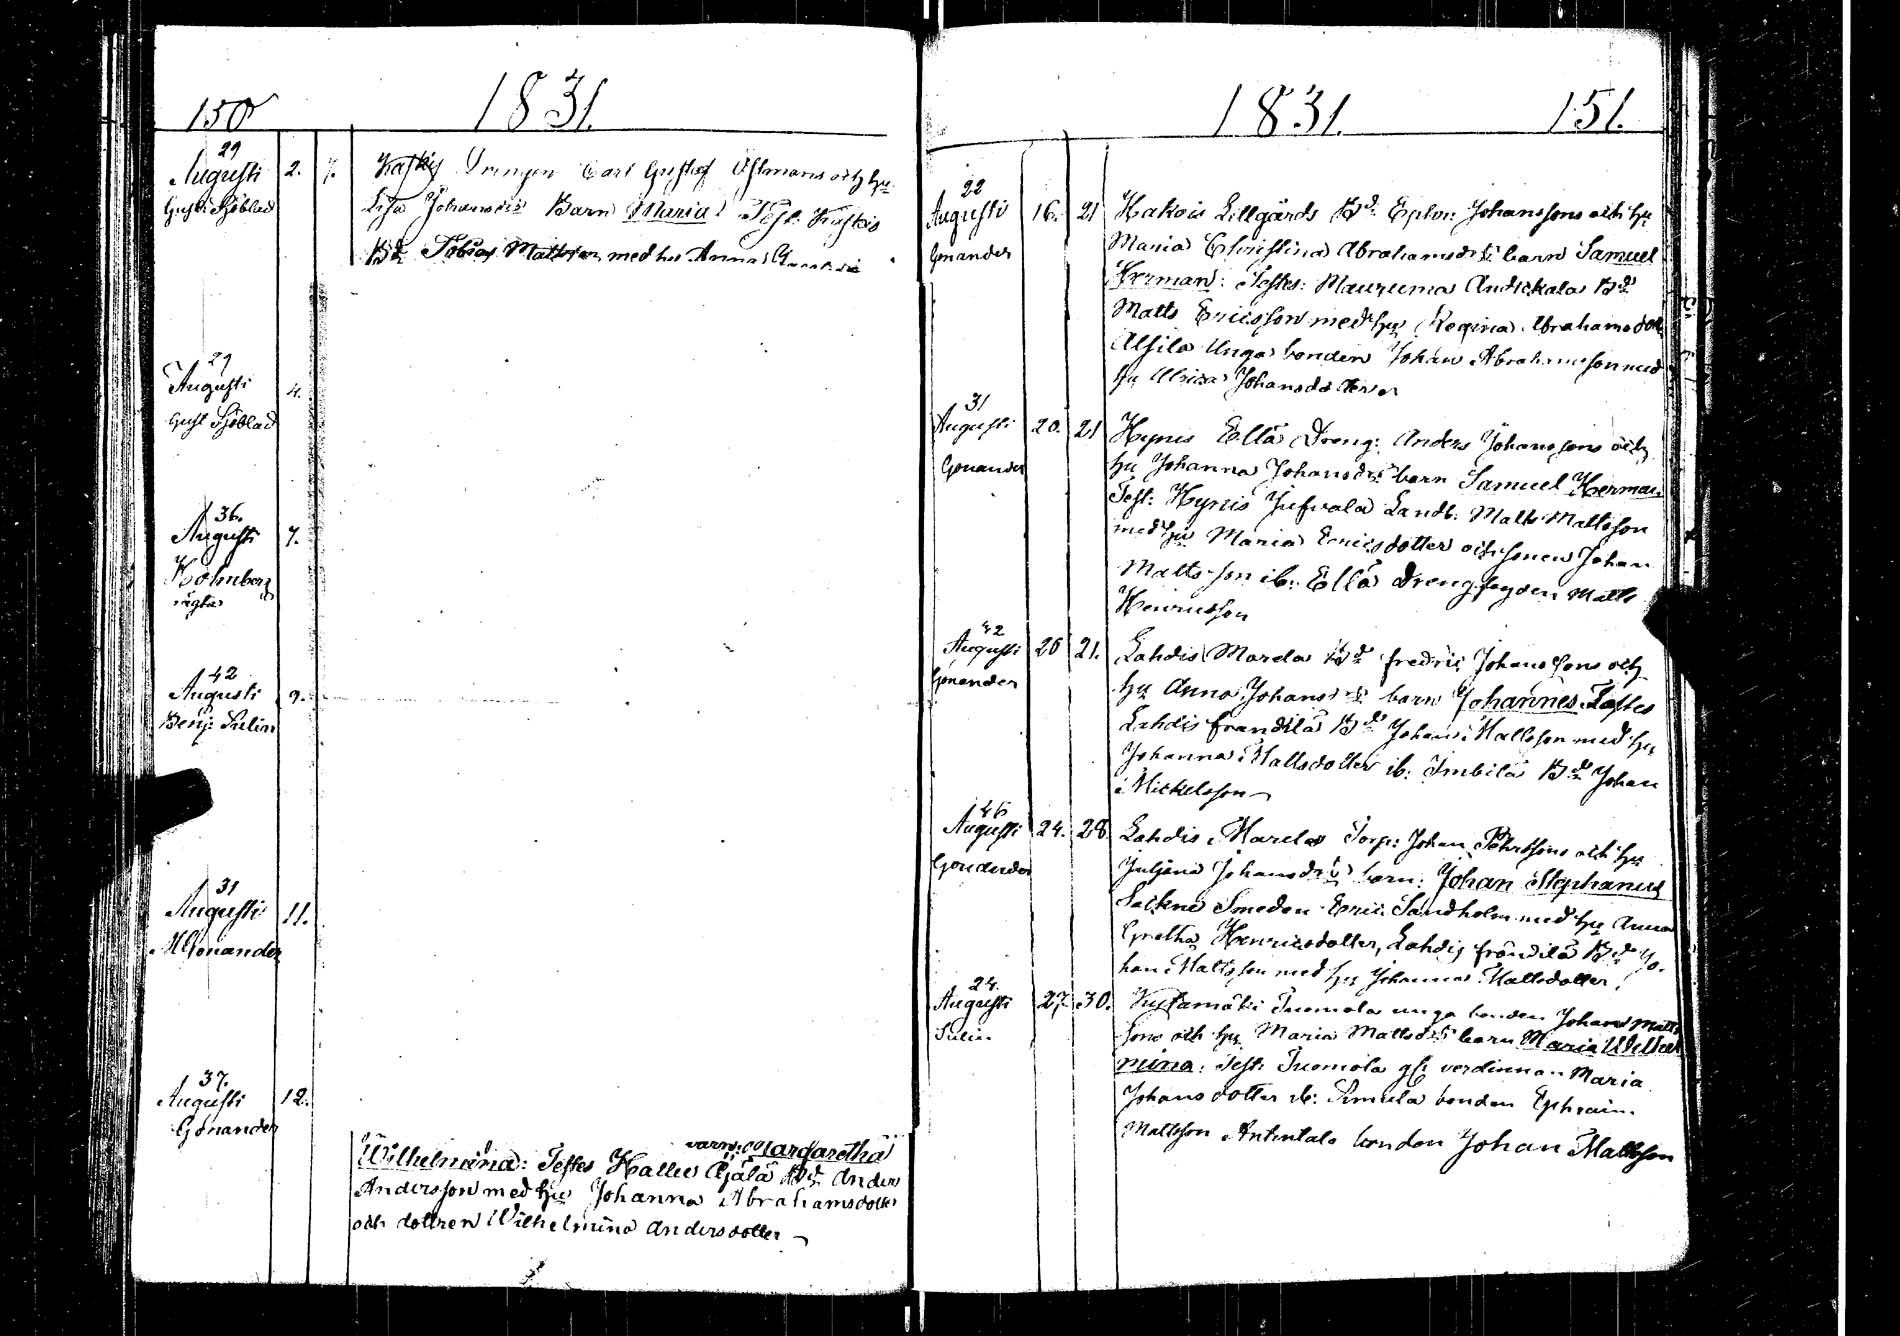 150
1831.
29
Augusti 2. 7. Kaskis Drengen Carl Gustaf Östmans och hu
Gust: Sjöblad Lisa Johansd:s Barn Maria Test: Kaskis
Bd Tobias Mattsson med hu Anna
29
Augusti 4.
Gust Sjöblad
36.
Augusti 7.
Holmberg
42
Augusti 9.
Benj: Sulin
31
Augusti 11.
M Gonander
37.
Augusti 12.
Gonander
barn: Margaretha
Wilhelmina: Testes Kallus Äjälä Bd Anders
Andersson med hu Johanna Abrahamsdotter
och dottren Wilhelmina Andersdotter
1831. 151.
22
Augusti 16. 21 Hakois Lillgårds Bd Johanssons och hu
Gonander Maria Christina Abrahamsd:s barn Samuel
Herman: Testes: Maurumaa Bd
Matts Ericsson med hu Regina Abrahamsdott
Alsila Unga bonden Johan Abrahamsson med
hu Johansdotter
31
Augusti 20. 21 Hynis Ellä Dreng: Anders Johanssons och
Gonander hu Johanna Johansd:s barn Samuel Herman
Test: Hynis Landb: Matts Mattsson
med hu Maria Ericsdotter och sonen Johan
Mattsson ib: Ellä Drengfogden Matts
Henricsson
42
Augusti 26 21. Lahdis Marela Bd fredric Johanssons och
Gonander hu Anna Johansd:s barn Johannes Testes
Lahdis frändilä Bd Johan Mattsson med hu
Johanna Mattsdotter ib: Imbilä Bd Johan
Mickelsson
46
Augusti 24. 28 Lahdis Marela Torp: Johan Pehrssons och hu
Gonander Juliana Johansd:s barn: Johan Stephanus
Sockne Smeden Eric Sandholm med hu Anna
Gretha Henricsdotter, Lahdis frändilä Bd Jo-
han Mattsson med hu Johanna Mattsdotter.
24.
Augusti 27. 30. Kustamäki Tuomola unga bonden Johan Matts
Sulin sons och hu Maria Mattsd:s barn Maria Wilhel
mina: Test: Tuomola gl: verdinnan Maria
Johansdotter ib: Simula bonden Ephraim
Mattsson Antintalo bonden Johan Mattsson